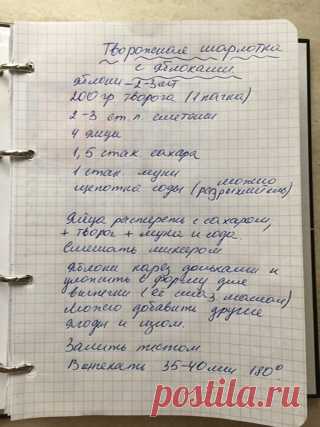 Творожная шарлотка
с яблоками.
Яблоки – 2-3 шт
200 гр творога (1 пачка)
2-3 ст. л. сметаны
4 яйца
1,5 стак. сахара
1 стак. муки
щепотка соды (можно
разрыхлитель)
Яйца растереть с сахаром,
+ творог + мука и сода.
Смешать миксером
Яблоки нарез. дольками и
уложить в форму для
выпечки (её смаз. маслом)
Можно добавить другие
ягоды и изюм.
Залить тестом.
Выпекать 35-40 мин 180°
postila.ru